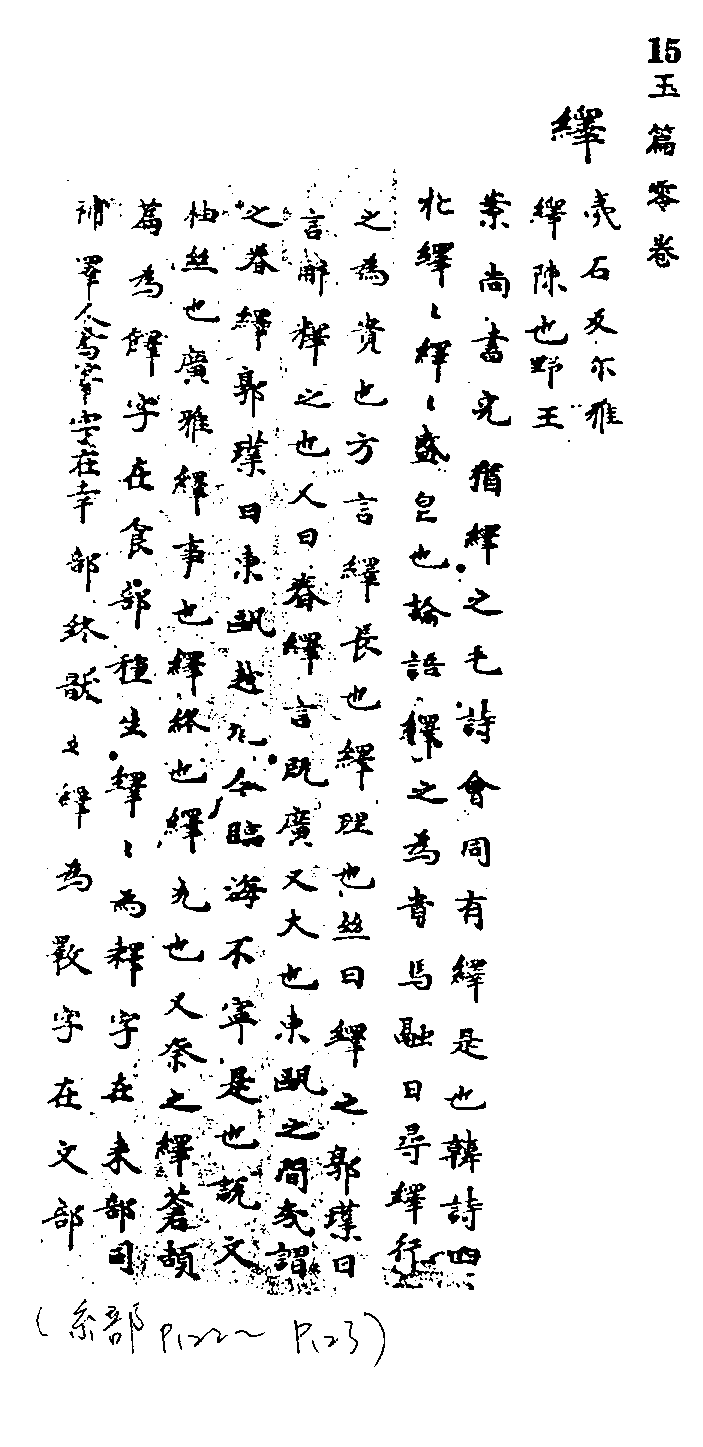 15 玉篇零卷
繹
夷石反尔雅
繹陳也野王
案尚書克猶繹之毛詩會同有繹是也韓詩四
牝繹〻繹〻盛皃也論語繹之為貴馬融曰尋繹行
之為貴也方言繹長也繹理也丝曰繹之郭璞曰
言解釋之也人曰眷繹言既廣又大也東甌之間或謂
之眷繹郭璞曰東甌越地今臨海不寧是也說文
柚丝也廣雅繹事也繹終也繹充也又祭之繹蒼頡
篇為䭞字在食部種生繹〻為釋字在耒部司
補睪人為睪字在幸部終猒之繹為斁字在文部
(糸部 P.122～P.123)